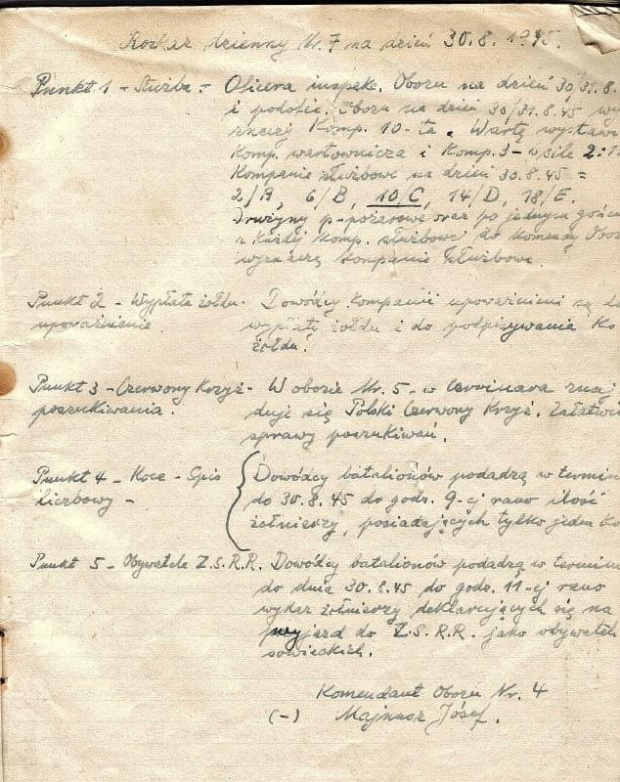 Rozkaz dzienny Nr. 7 na dzień 30.8.1945.
Punkt 1 - Służba = Oficera inspek. Obozu na dzień 30/31.8.
i podofic. Obozu na dzień 30/31.8.45 wy
znaczy Komp. 10-ta. Wartę wystawi
Komp. wartownicza i Komp. 3 - w sile 2:1
Kompanie służbowe na dzień 30.8.45 =
2/A, 6/B, 10/C, 14/D, 18/E.
Drużyny p-pożarowe oraz po jednym gońcu
z każdej Komp. służbowej do Komendy Obozu
wyznaczą Kompanie Służbowe.
Punkt 2 - Wypłata żołdu - Dowódcy Kompanii upoważnieni są do
upoważnienie. wypłaty żołdu i do podpisywania
żołdu.
Punkt 3 - Czerwony Krzyż - W obozie Nr. 5 - w Cervinara znaj
poszukiwania. duje się Polski Czerwony Krzyż. Załatwia
sprawy poszukiwań.
Punkt 4 - Koce - Spis Dowódcy batalionów podadzą w termin
liczbowy - do 30.8.45 do godz. 9-ej rano ilość
żołnierzy, posiadających tylko jeden ko
Punkt 5 - Obywatele Z.S.R.R. Dowódcy batalionów podadzą w termin
do dnia 30.8.45 do godz. 11-ej rano
wykaz żołnierzy deklarujących się na
wyjazd do Z.S.R.R. jako obywateli
sowieckich.
Komendant Obozu Nr. 4
(-) Majnusz Józef.